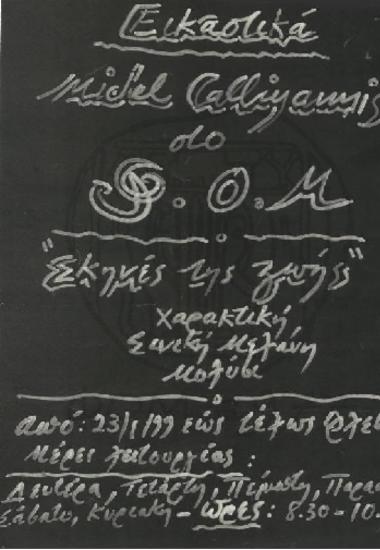 Εικαστικά
Michel Calliyannis
στο
P.O.M
"Σκηνές της ζωής"
Χαρακτική
Σινική Μελάνη
Μολύβι
από: 23/1/99 εώς τέλος Φλε
Μέρες λειτουργίας:
Δευτέρα, Τετάρτη, Πέμπτη, Παρασ
Σάβατο, Κυριακή - ώρες: 8.30-10.